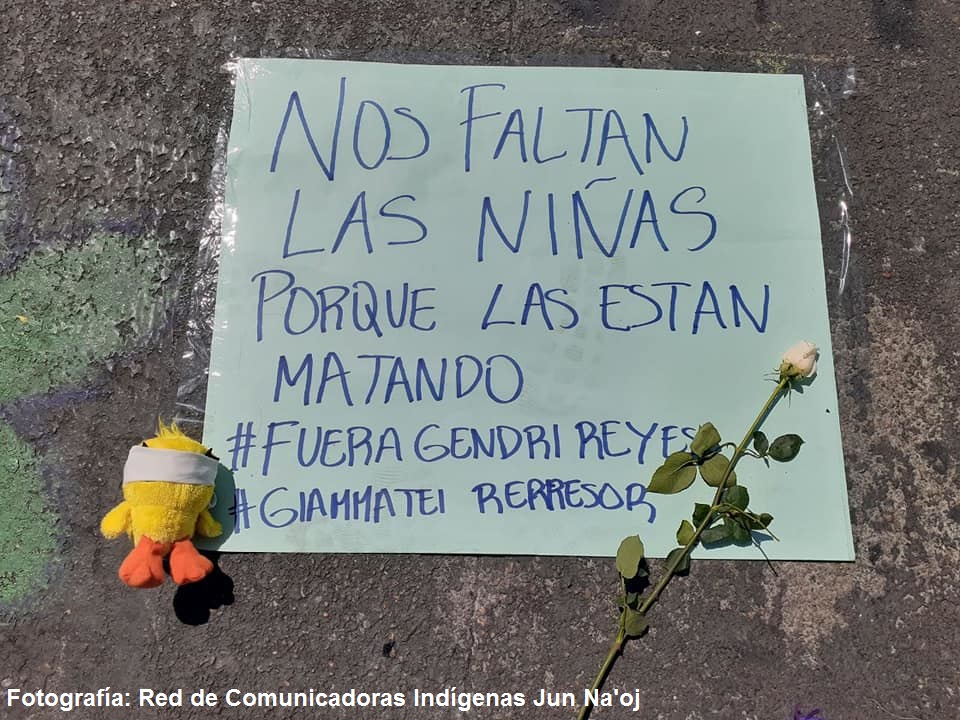 NOS FALTAN
LAS NIÑAS
PORQUE LAS ESTAN
MATANDO
#FUERA GENDRI REYES
#GIAMMATEI RERRESOR
Fotografía: Red de Comunicadoras Indígenas Jun Na'oj